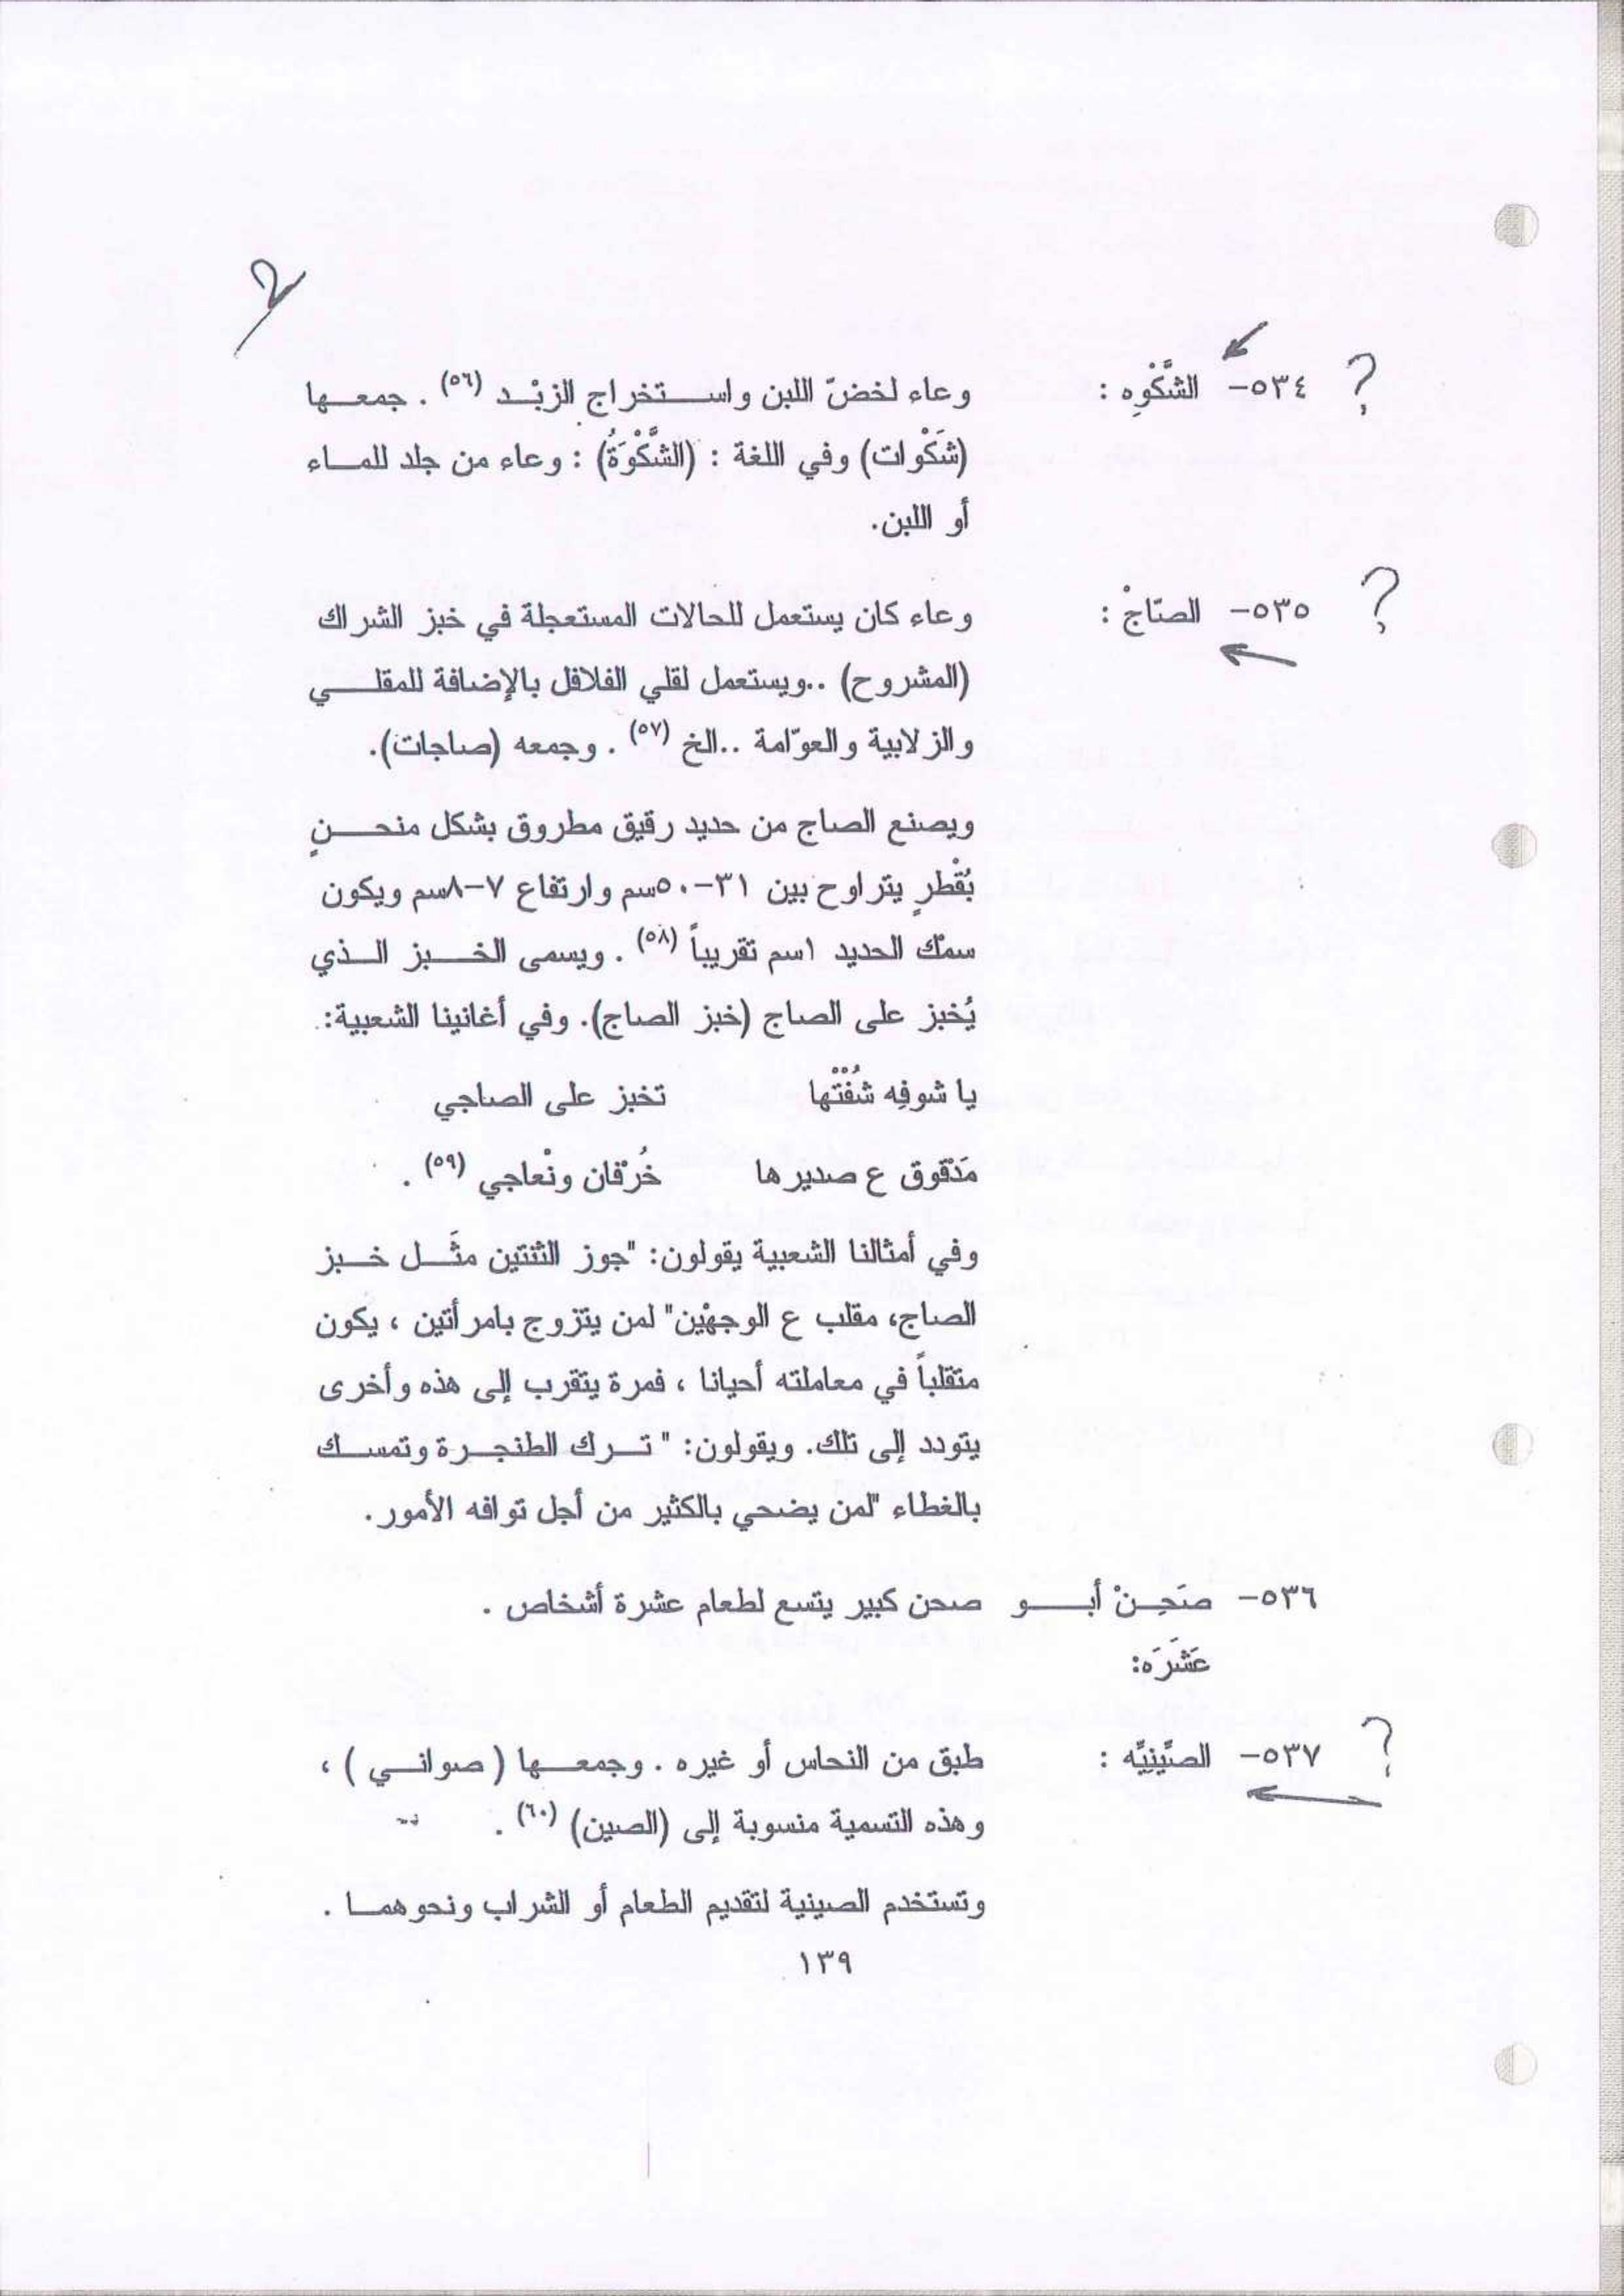 2
؟ ٥٣٤- الشَّكْوِه : وعاء لخضّ اللبن واستخراج الزبْد (٥٦) . جمعها
(شَكْوات) وفي اللغة : (الشَّكْوَةُ) : وعاء من جلد للماء
أو اللبن.
؟ ٥٣٥- الصّاجْ : وعاء كان يستعمل للحالات المستعجلة في خبز الشراك
(المشروح) ..ويستعمل لقلي الفلافل بالإضافة للمقلي
والزلابية والعوّامة ..الخ (٥٧) . وجمعه (صاجات).
ويصنع الصاج من حديد رقيق مطروق بشكل منحنٍ
بُقْطرٍ يتراوح بين ٣١-٥٠سم وارتفاع ٧-٨سم ويكون
سمْك الحديد ١سم تقريباً (٥٨) . ويسمى الخبز الذي
يُخبز على الصاج (خبز الصاج). وفي أغانينا الشعبية:
يا شوفِه شُفْتْها تخبز على الصاجي
مَدْقوق ع صديرها خُرْفان ونْعاجي (٥٩) .
وفي أمثالنا الشعبية يقولون: "جوز الثنتين مثَل خبز
الصاج، مقلب ع الوجهْين" لمن يتزوج بامرأتين ، يكون
متقلباً في معاملته أحيانا ، فمرة يتقرب إلى هذه وأخرى
يتودد إلى تلك. ويقولون: " ترك الطنجرة وتمسك
بالغطاء "لمن يضحي بالكثير من أجل توافه الأمور.
٥٣٦- صَحِنْ أبو صحن كبير يتسع لطعام عشرة أشخاص .
عَشَرَه:
؟ ٥٣٧- الصِّينِيِّه : طبق من النحاس أو غيره . وجمعها ( صواني ) ،
وهذه التسمية منسوبة إلى (الصين) (٦٠) .
وتستخدم الصينية لتقديم الطعام أو الشراب ونحوهما .
١٣٩